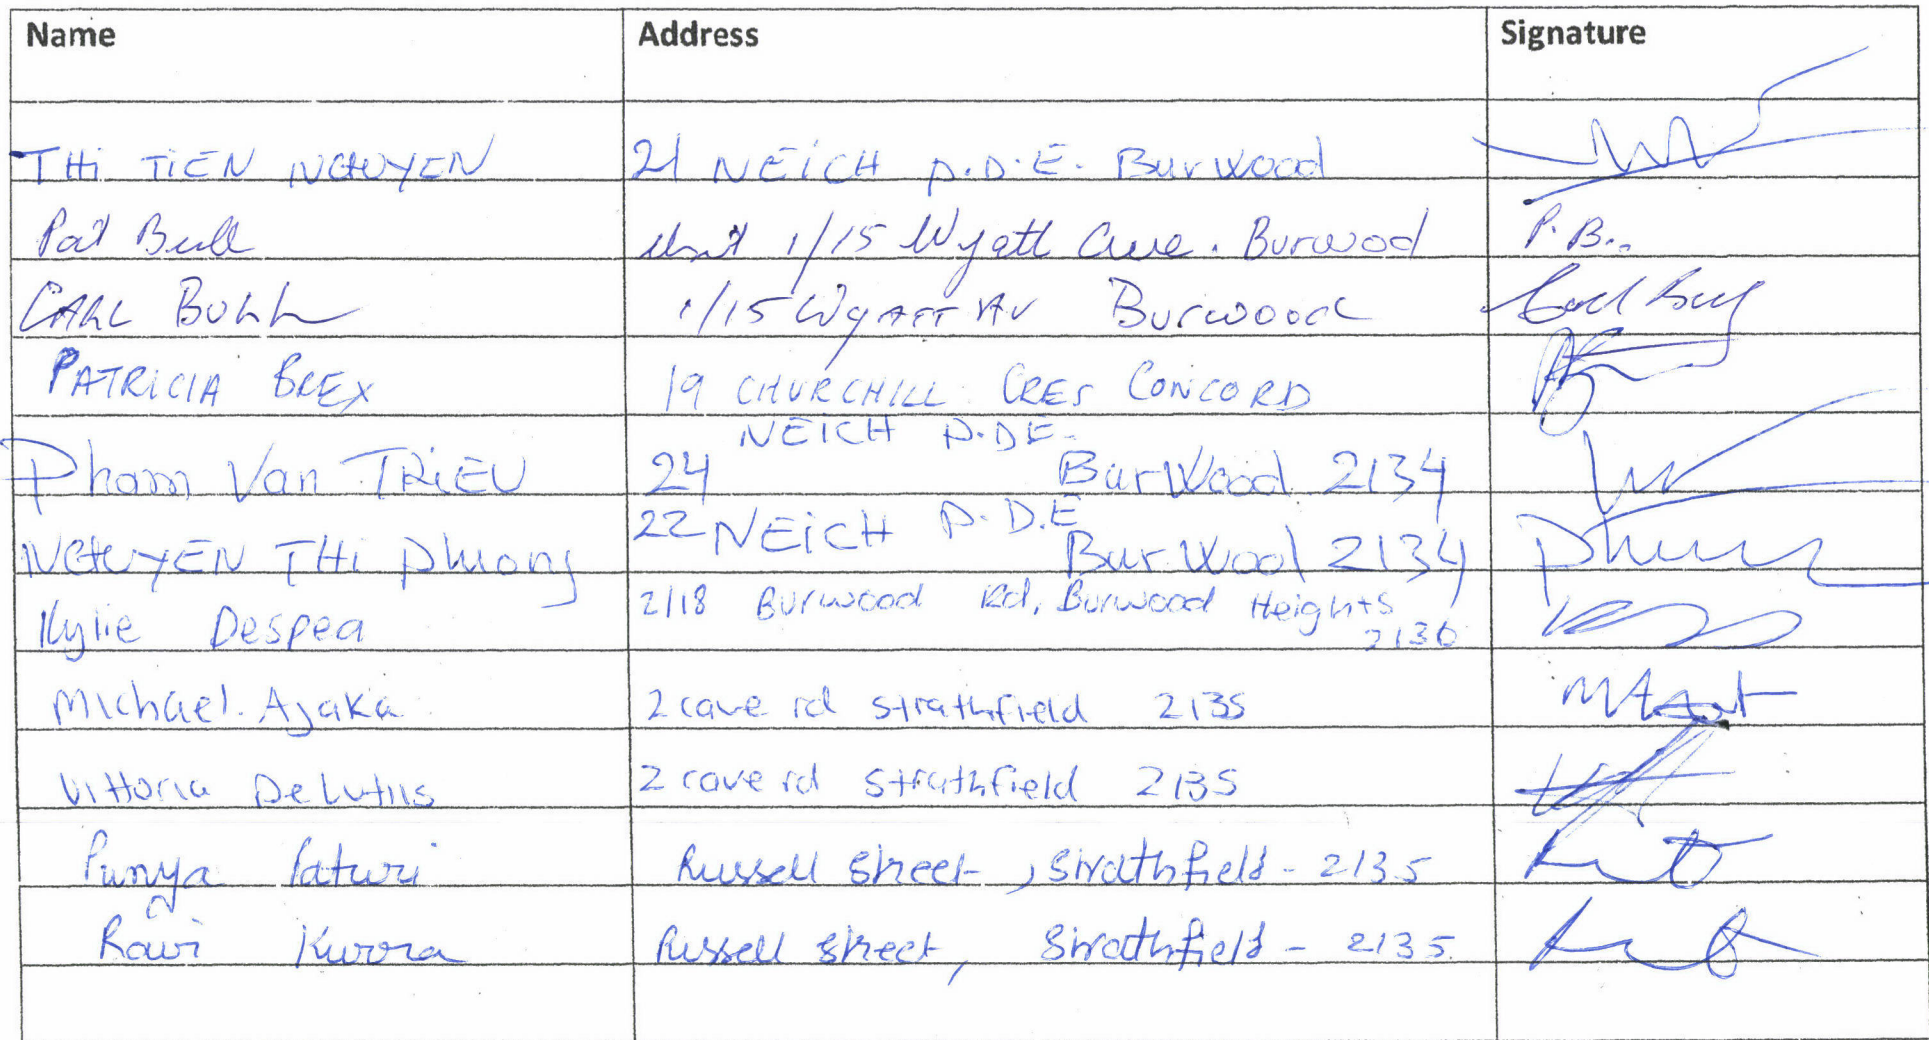 Name Address Signature
THi TiEN NGUYEN 21 NEiCH P.D.E. Burwood
Pat Bull Unit 1/15 Wyatt Ave. Burwood P.B..
CARL BULL 1/15 WYATT AV Burwood Carl Bull
PATRICIA BLEX 19 CHURCHILL CRES CONCORD
Pham Van TRiEU 24 NEICH P.DE. BurWood 2134
NGUYEN THi Phuong 22 NEiCH P.D.E BurWood 2134
Kylie Despea 2/18 Burwood Rd, Burwood Heights 2136
Michael Ajaka 2 cave rd strathfield 2135
Vittoria DeLutiis 2 cave rd strathfield 2135
Punya Paturi Russell street, Strathfield - 2135
Ravi Kurra Russell street, Strathfield - 2135